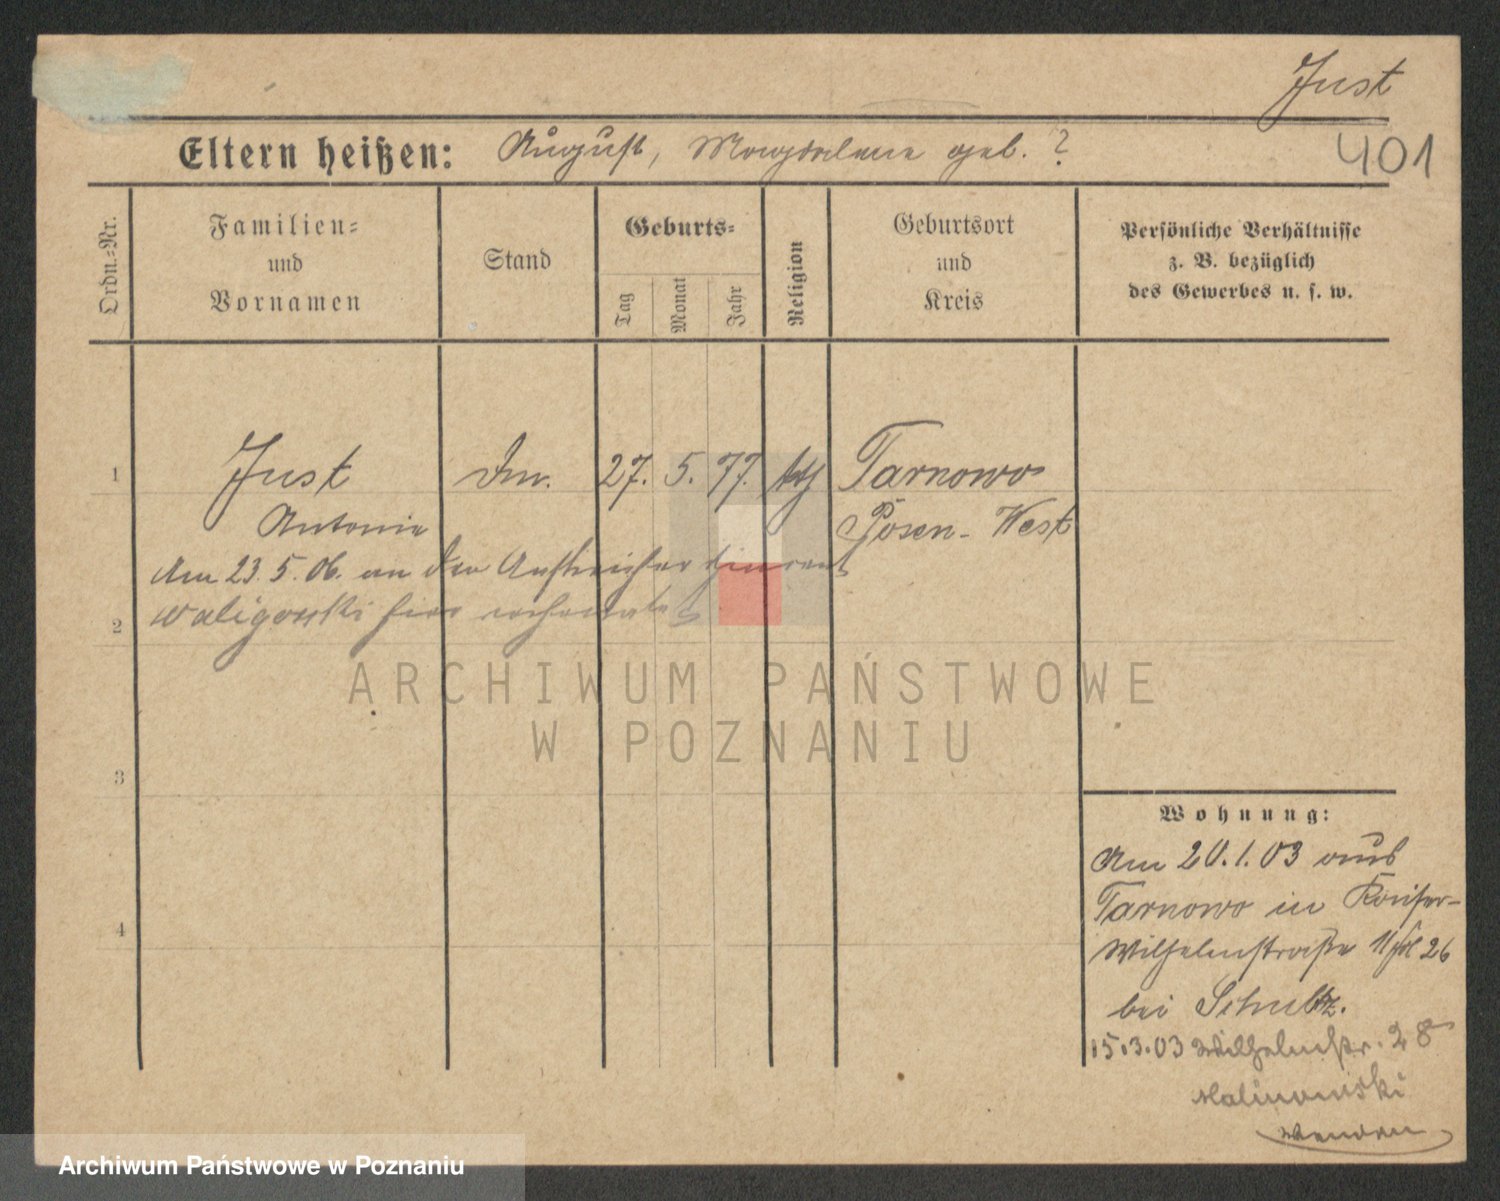 Just
Eltern heißen: August, Magdalena geb. ?
401
Ordn.-Nr.
Familien-
und
Vornamen
Stand
Geburts-
Tag
Monat
Jahr
Religion
Geburtsort
und
Kreis
Persönliche Verhältnisse
z. B. bezüglich
des Gewerbes u. s. w.
1 Just 27. 5. 77. kth Tarnowo
Antonie Posen-West
Am 23.5.06. an den Anstreicher
2 Waligorski hier
ARCHIWUM PAŃSTWOWE
W POZNANIU
3
4
Wohnung:
Am 20.1.03 aus
Tarnowo in Kaiser-
Wilhelmstraße 26
bei Schultz.
15.3.03 Wilhelmstr. 28
Malinowski
Wenden
Archiwum Państwowe w Poznaniu